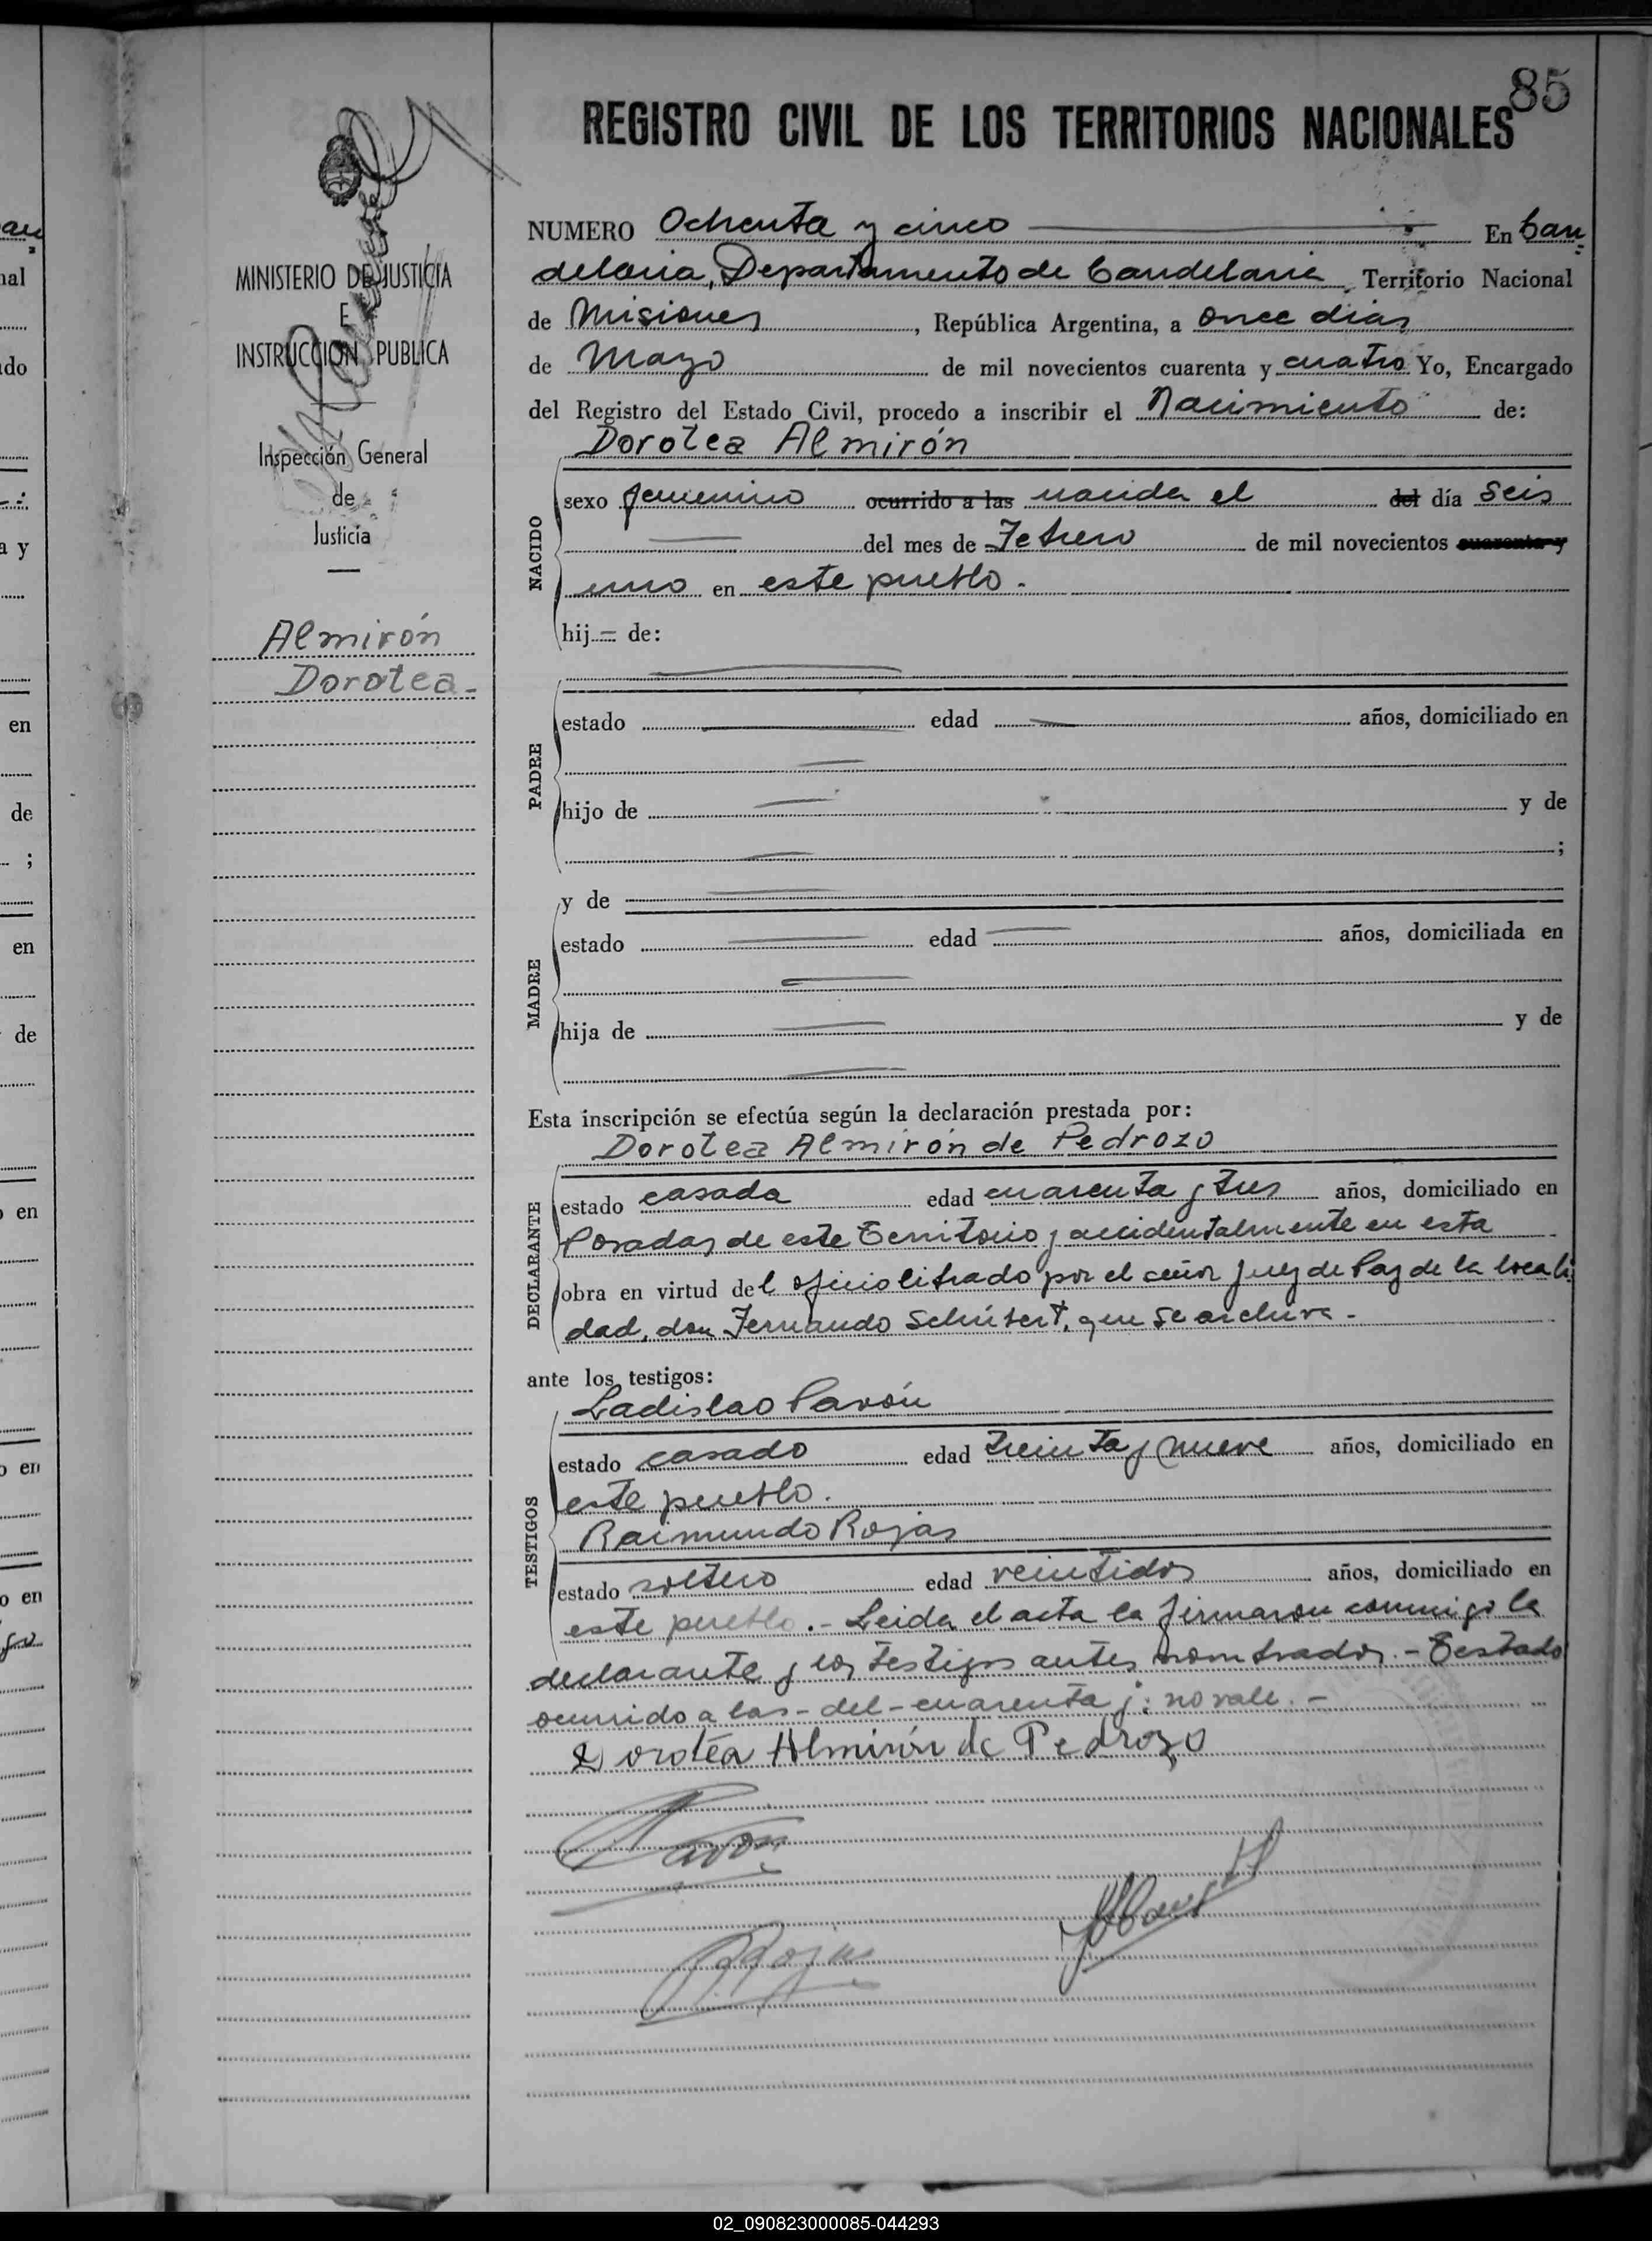 85
REGISTRO CIVIL DE LOS TERRITORIOS NACIONALES
MINISTERIO DE JUSTICIA
E
INSTRUCCION PUBLICA
Inspección General
de
Justicia
Almirón
Dorotea
NUMERO Ochenta y cinco En Can
delaria, Departamento de Candelaria Territorio Nacional
de Misiones, República Argentina, a once dias
de Mayo de mil novecientos cuarenta y cuatro Yo, Encargado
del Registro del Estado Civil, procedo a inscribir el Nacimiento de:
Dorotea Almirón
NACIDO
sexo femenino ocurrido a las nacida el del día seis
del mes de Febrero de mil novecientos cuarenta y
uno en este pueblo.
hij = de:
PADRE
estado edad años, domiciliado en
hijo de y de
;
y de
MADRE
estado edad años, domiciliada en
hija de y de
Esta inscripción se efectúa según la declaración prestada por:
Dorotea Almirón de Pedrozo
DECLARANTE
estado casada edad cuarenta y tres años, domiciliado en
Posadas de este Territorio y accidentalmente en esta
obra en virtud del oficio librado por el señor Juez de Paz de la locali
dad, don Fernando Schubert, que se archiva.-
ante los testigos:
Ladislao Pavón
TESTIGOS
estado casado edad treinta y nueve años, domiciliado en
este pueblo.
Raimundo Rojas
estado soltero edad veintidos años, domiciliado en
este pueblo.- Leida el acta la firmaron conmigo la
declarante y los testigos antes nombrados.- Testado
ocurrido a las - del - cuarenta y: no vale.-
Dorotea Almirón de Pedrozo
Pavón
R Rojas
02_090823000085-044293